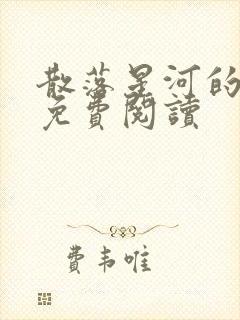 散落星河的
免費閱讀
費韋唯